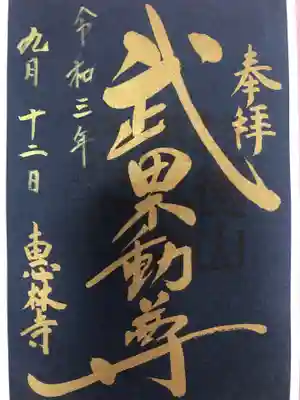 奉拝
武田不動尊
令和三年
九月十二日
惠林寺